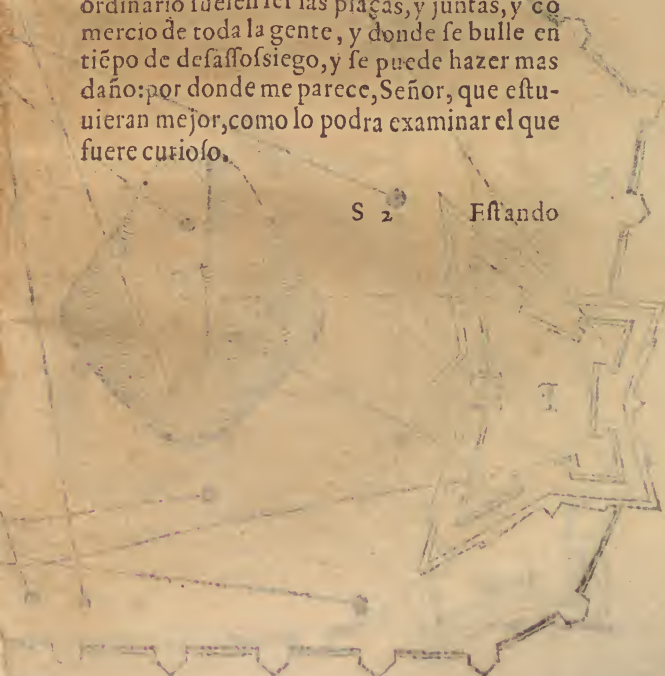 ordinario suelen ser las plaças, y juntas, y co
mercio de toda la gente, y donde ſe bulle en
tiẽpo de deſaſſoſsiego, y ſe puede hazer mas
daño: por donde me parece, Señor, que eſtu-
uieran mejor, como lo podra examinar el que
fuere curioſo.
S 2 Eſtando